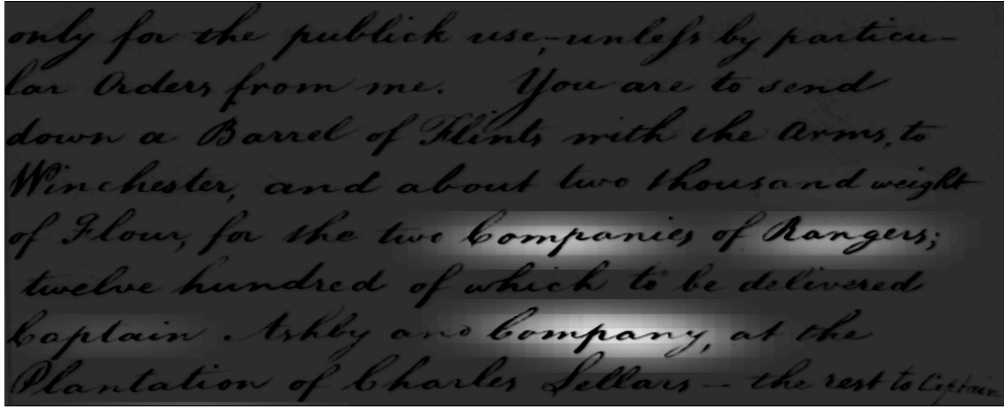 only for the publick use,-unless by particu-
lar Orders from me. You are to send
down a Barrel of Flints with the Arms, to
Winchester, and about two thousand weight
of Flour, for the two Companies of Rangers;
twelve hundred of which to be delivered
Captain Ashby and Company, at the
Plantation of Charles Sellars - the rest to Captain